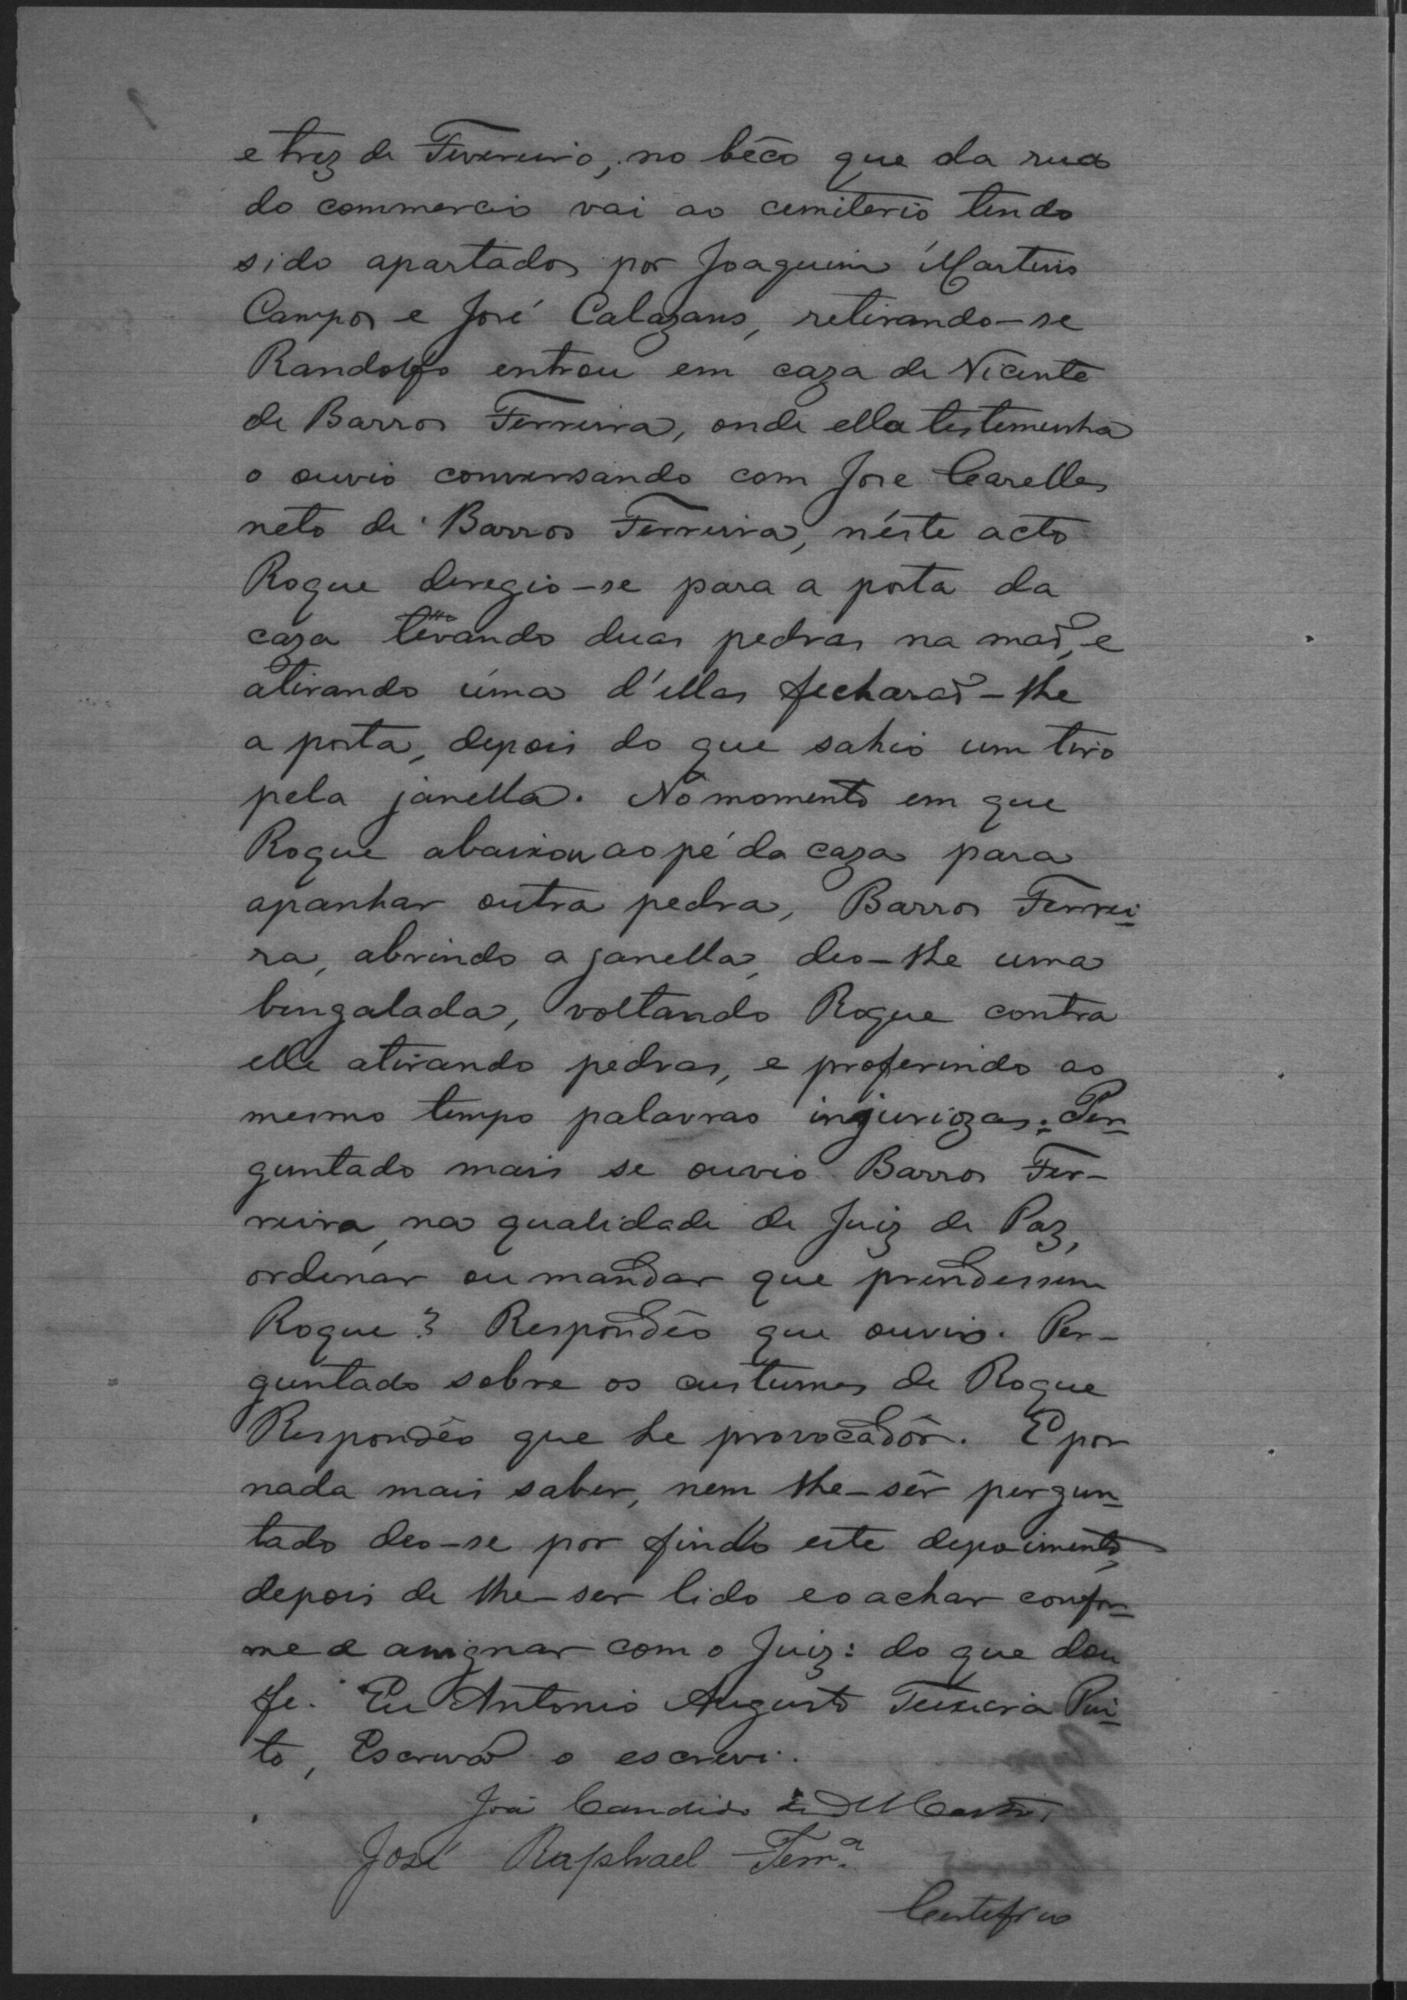 e trez de Fevereiro, no bêco que da rua
do commercio vai ao cemiterio tendo
sido apartados por Joaquim Martins
Campos e José Calazans, retirando-se
Randolfo entrou em caza de Vicente
de Barros Ferreira, onde ella testemunha
o ouvio conversando com Jose Carelles
neto de Barros Ferreira, néste acto
Roque deregio-se para a porta da
caza levando duas pedras na maõ, e
atirando uma d'ellas fecharaõ-lhe
a porta, depois do que sahio um tiro
pela janella. No momento em que
Roque abaixou ao pé da caza para
apanhar outra pedra, Barros Ferrei-
ra, abrindo a janella, deo-lhe uma
bengalada, voltando Roque contra
elle atirando pedras, e proferindo ao
mesmo tempo palavras injuriozas. Per-
guntado mais se ouvio Barros Fer-
reira, na qualidade de Juiz de Paz,
ordenar ou mandar que prendessem
Roque? Respondêo que ouvio. Per-
guntado sobre os custumes de Roque
Respondêo que he provocadôr. E por
nada mais saber, nem lhe-sêr pergun-
tado deo-se por findo este depoimento,
depois de lhe-ser lido e o achar confor-
me e assignar com o Juiz: do que dou
fe. Eu Antonio Augusto Teixeira Pin-
to, Escrivaõ o escrevi.
Candido
José Raphael Ferrª
Certefico